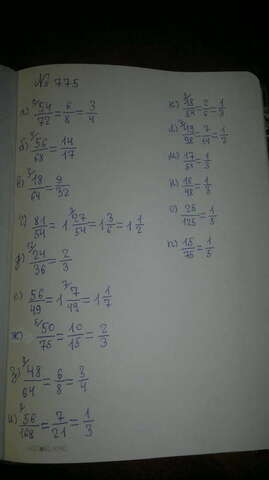 № 775
а) 54/72 = 6/8 = 3/4
б) 56/68 = 14/17
в) 18/64 = 9/32
г) 81/54 = 1 27/54 = 1 3/6 = 1 1/2
д) 24/36 = 2/3
е) 56/49 = 1 7/49 = 1 1/7
ж) 50/75 = 10/15 = 2/3
з) 48/64 = 6/8 = 3/4
и) 56/168 = 7/21 = 1/3
к) = 2/6 = 1/3
л) 49/98 = 7/14 = 1/2
м) 17/51 = 1/3
н) 16/48 = 1/3
о) 25/125 = 1/5
п) 15/75 = 1/5